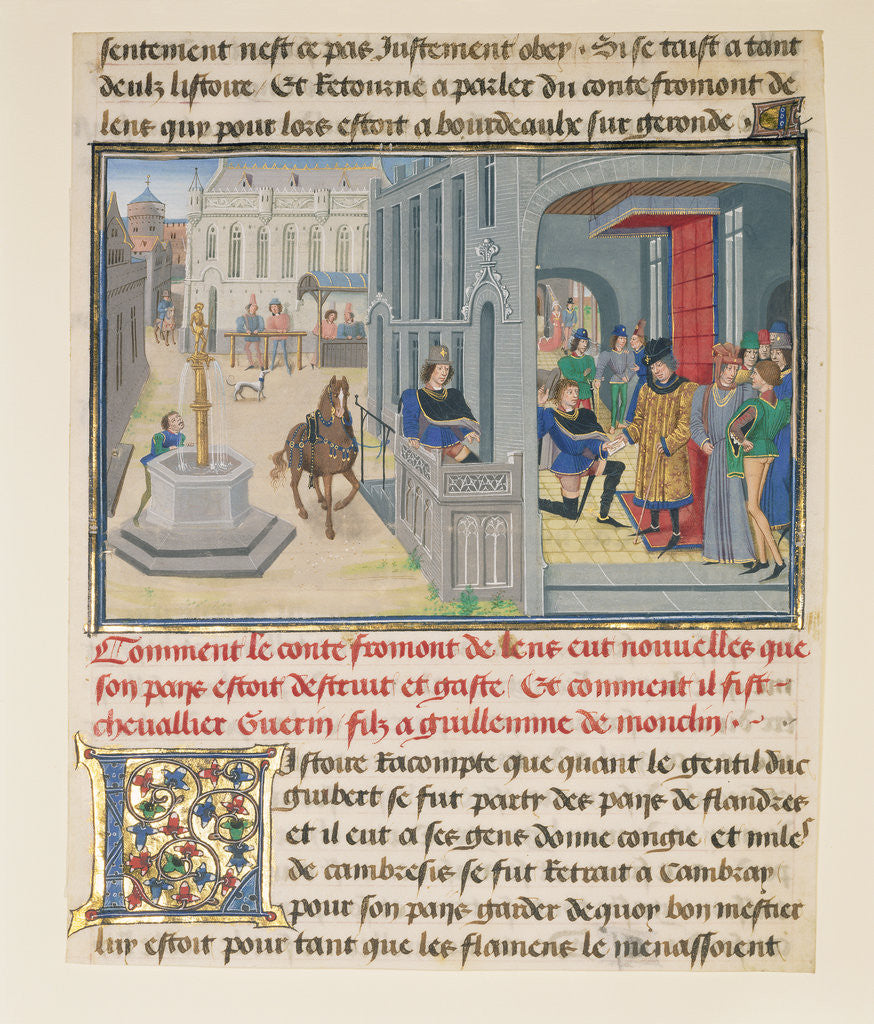 sentement nest ce pas Justement obey . Si se taist a tant
deulz listoire / Et Retourne a parler du conte fromont de
lens quy pour lors estoit a bourdeaulx sur geronde .
Comment le conte fromont de lens eut nouuelles que
son pays estoit destruit et gaste / Et comment il fist
cheuallier Guerin / filz a guillemme de monclin . .
Listoire Racompte que quant le gentil duc
guibert se fut party des pays de flandres
et il eut a ses gens donne congie et miles
de cambresis se fut Retrait a Cambray /
pour son pays garder dequoy bon mestier
luy estoit pour tant que les flamens le menassoient